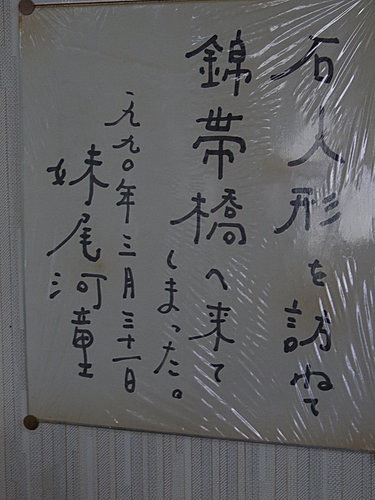 石人形を訪ねて
錦帯橋へ来て
しまった。
一九九〇年三月三十一日
妹尾河童